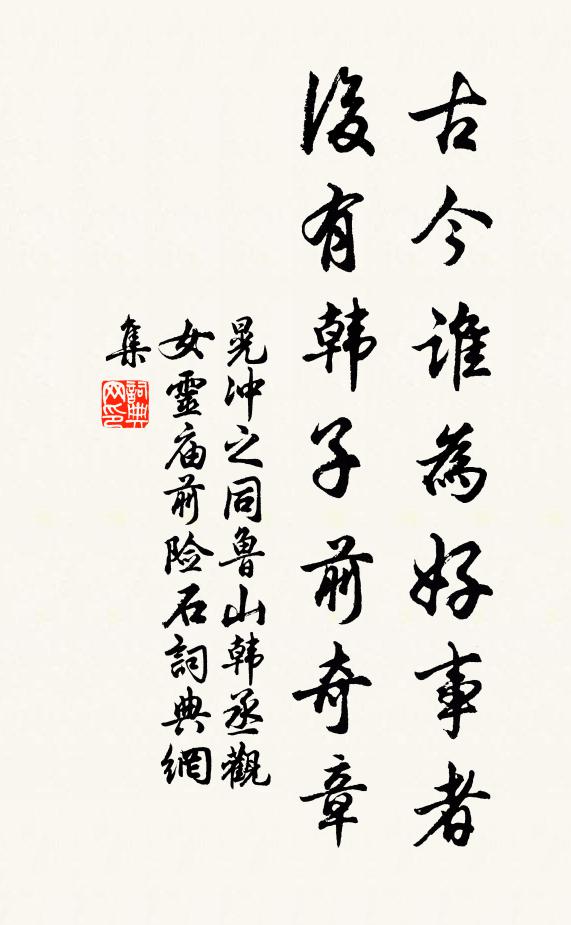 古今誰為好事者
後有韩子前奇章
晁冲之同魯山韩丞觀
女靈庙前险石詞典網
集
詞典
网印